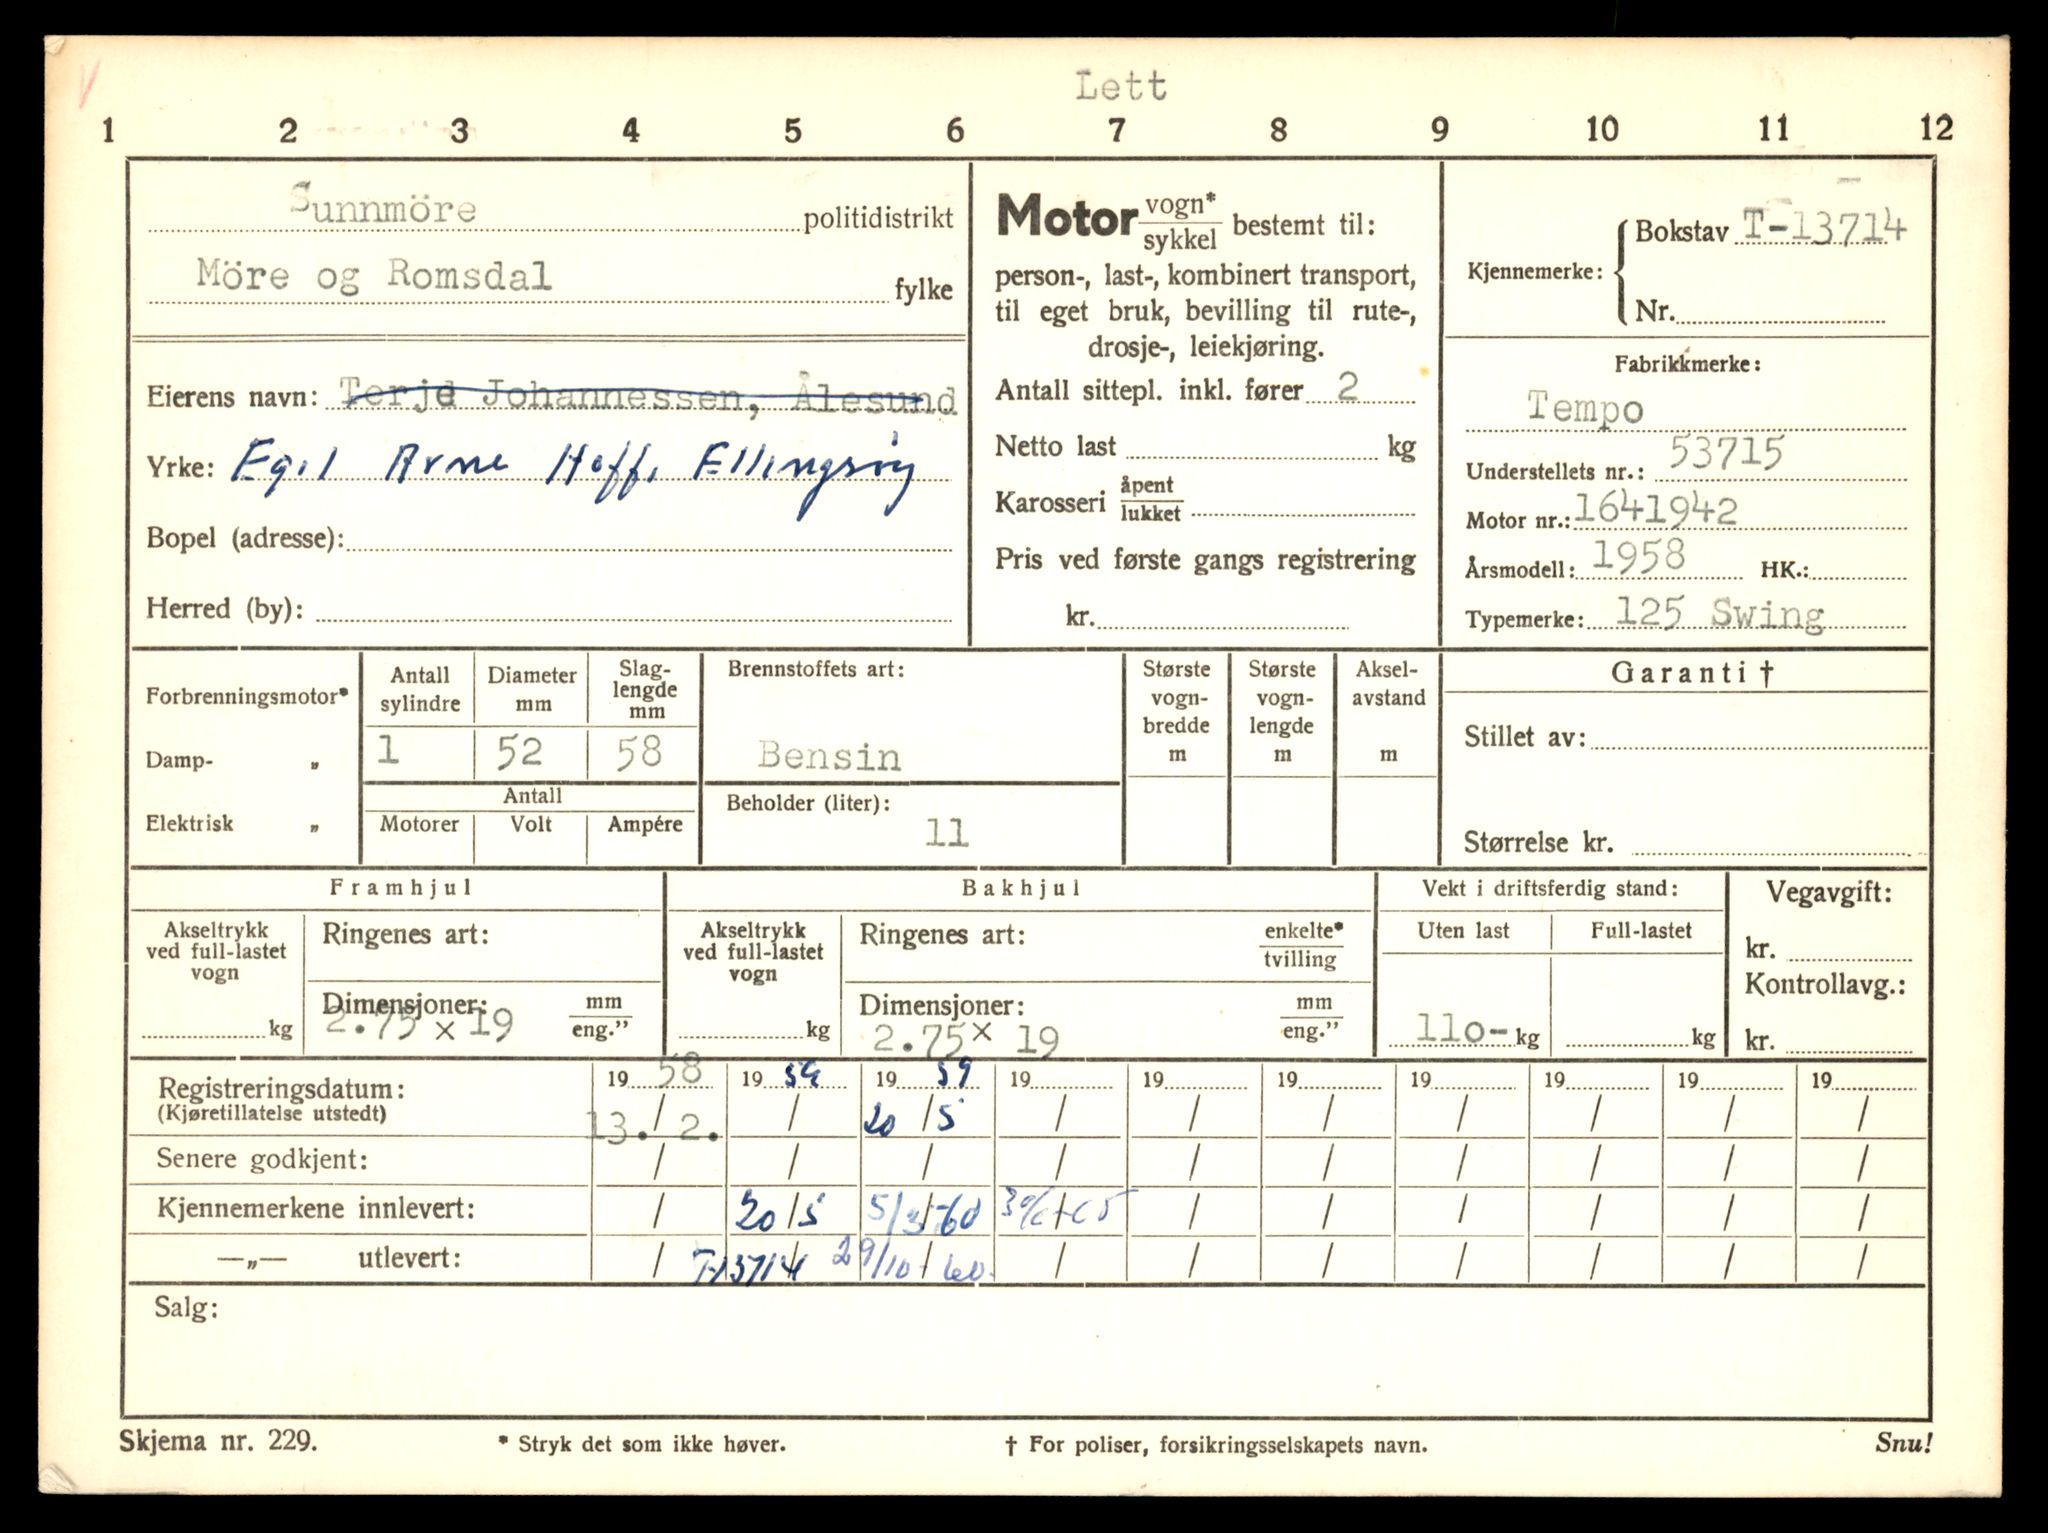 Lett
1 2 3 4 5 6 7 8 9 10 11 12
Sunnmöre politidistrikt
Möre og Romsdal fylke
Eierens navn: Terje Johannessen, Ålesund
Yrke: Egil Arne Hoff, Ellingsøy
Bopel (adresse):
Herred (by):
Motor vogn* / sykkel bestemt til:
person-, last-, kombinert transport,
til eget bruk, bevilling til rute-,
drosje-, leiekjøring.
Antall sittepl. inkl. fører 2
Netto last kg
Karosseri åpent / lukket
Pris ved første gangs registrering
kr.
Kjennemerke: Bokstav T-13714
Nr.
Fabrikkmerke:
Tempo
Understellets nr.: 53715
Motor nr.: 1641942
Årsmodell: 1958 HK.:
Typemerke: 125 Swing
Forbrenningsmotor*
Damp- „
Elektrisk „
Antall sylindre
1
Diameter mm
52
Slag-
lengde
mm
58
Antall
Motorer Volt Ampére
Brennstoffets art:
Bensin
Beholder (liter):
11
Største
vogn-
bredde
m
Største
vogn-
lengde
m
Aksel-
avstand
m
Garanti †
Stillet av:
Størrelse kr.
Framhjul
Akseltrykk
ved full-lastet
vogn
kg
Ringenes art:
Dimensjoner: mm / eng.”
2.75 x 19
Bakhjul
Akseltrykk
ved full-lastet
vogn
kg
Ringenes art: enkelte* / tvilling
Dimensjoner: mm / eng.”
2.75 x 19
Vekt i driftsferdig stand:
Uten last Full-lastet
110- kg kg
Vegavgift:
kr.
Kontrollavg.:
kr.
Registreringsdatum: 19 58 19 59 19 59 19 19 19 19 19 19 19
(Kjøretillatelse utstedt) 13. / 2. / 20 / 5 / / / / / / /
Senere godkjent: / / / / / / / / / /
Kjennemerkene innlevert: / 20 / 5 5/3-60 / / / / / /
—„— utlevert: / T-13714 29/10-60. / / / / / / /
Salg:
Skjema nr. 229. * Stryk det som ikke høver. † For poliser, forsikringsselskapets navn. Snu!